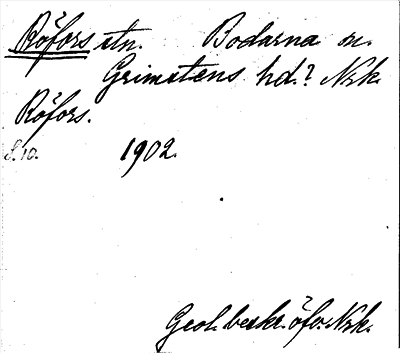 Röfors stn. Bodarna m.
Grimstens hd? Nrk.
Röfors.
S. 10. 1902.
Geol. beskr. öfv. Nrk.